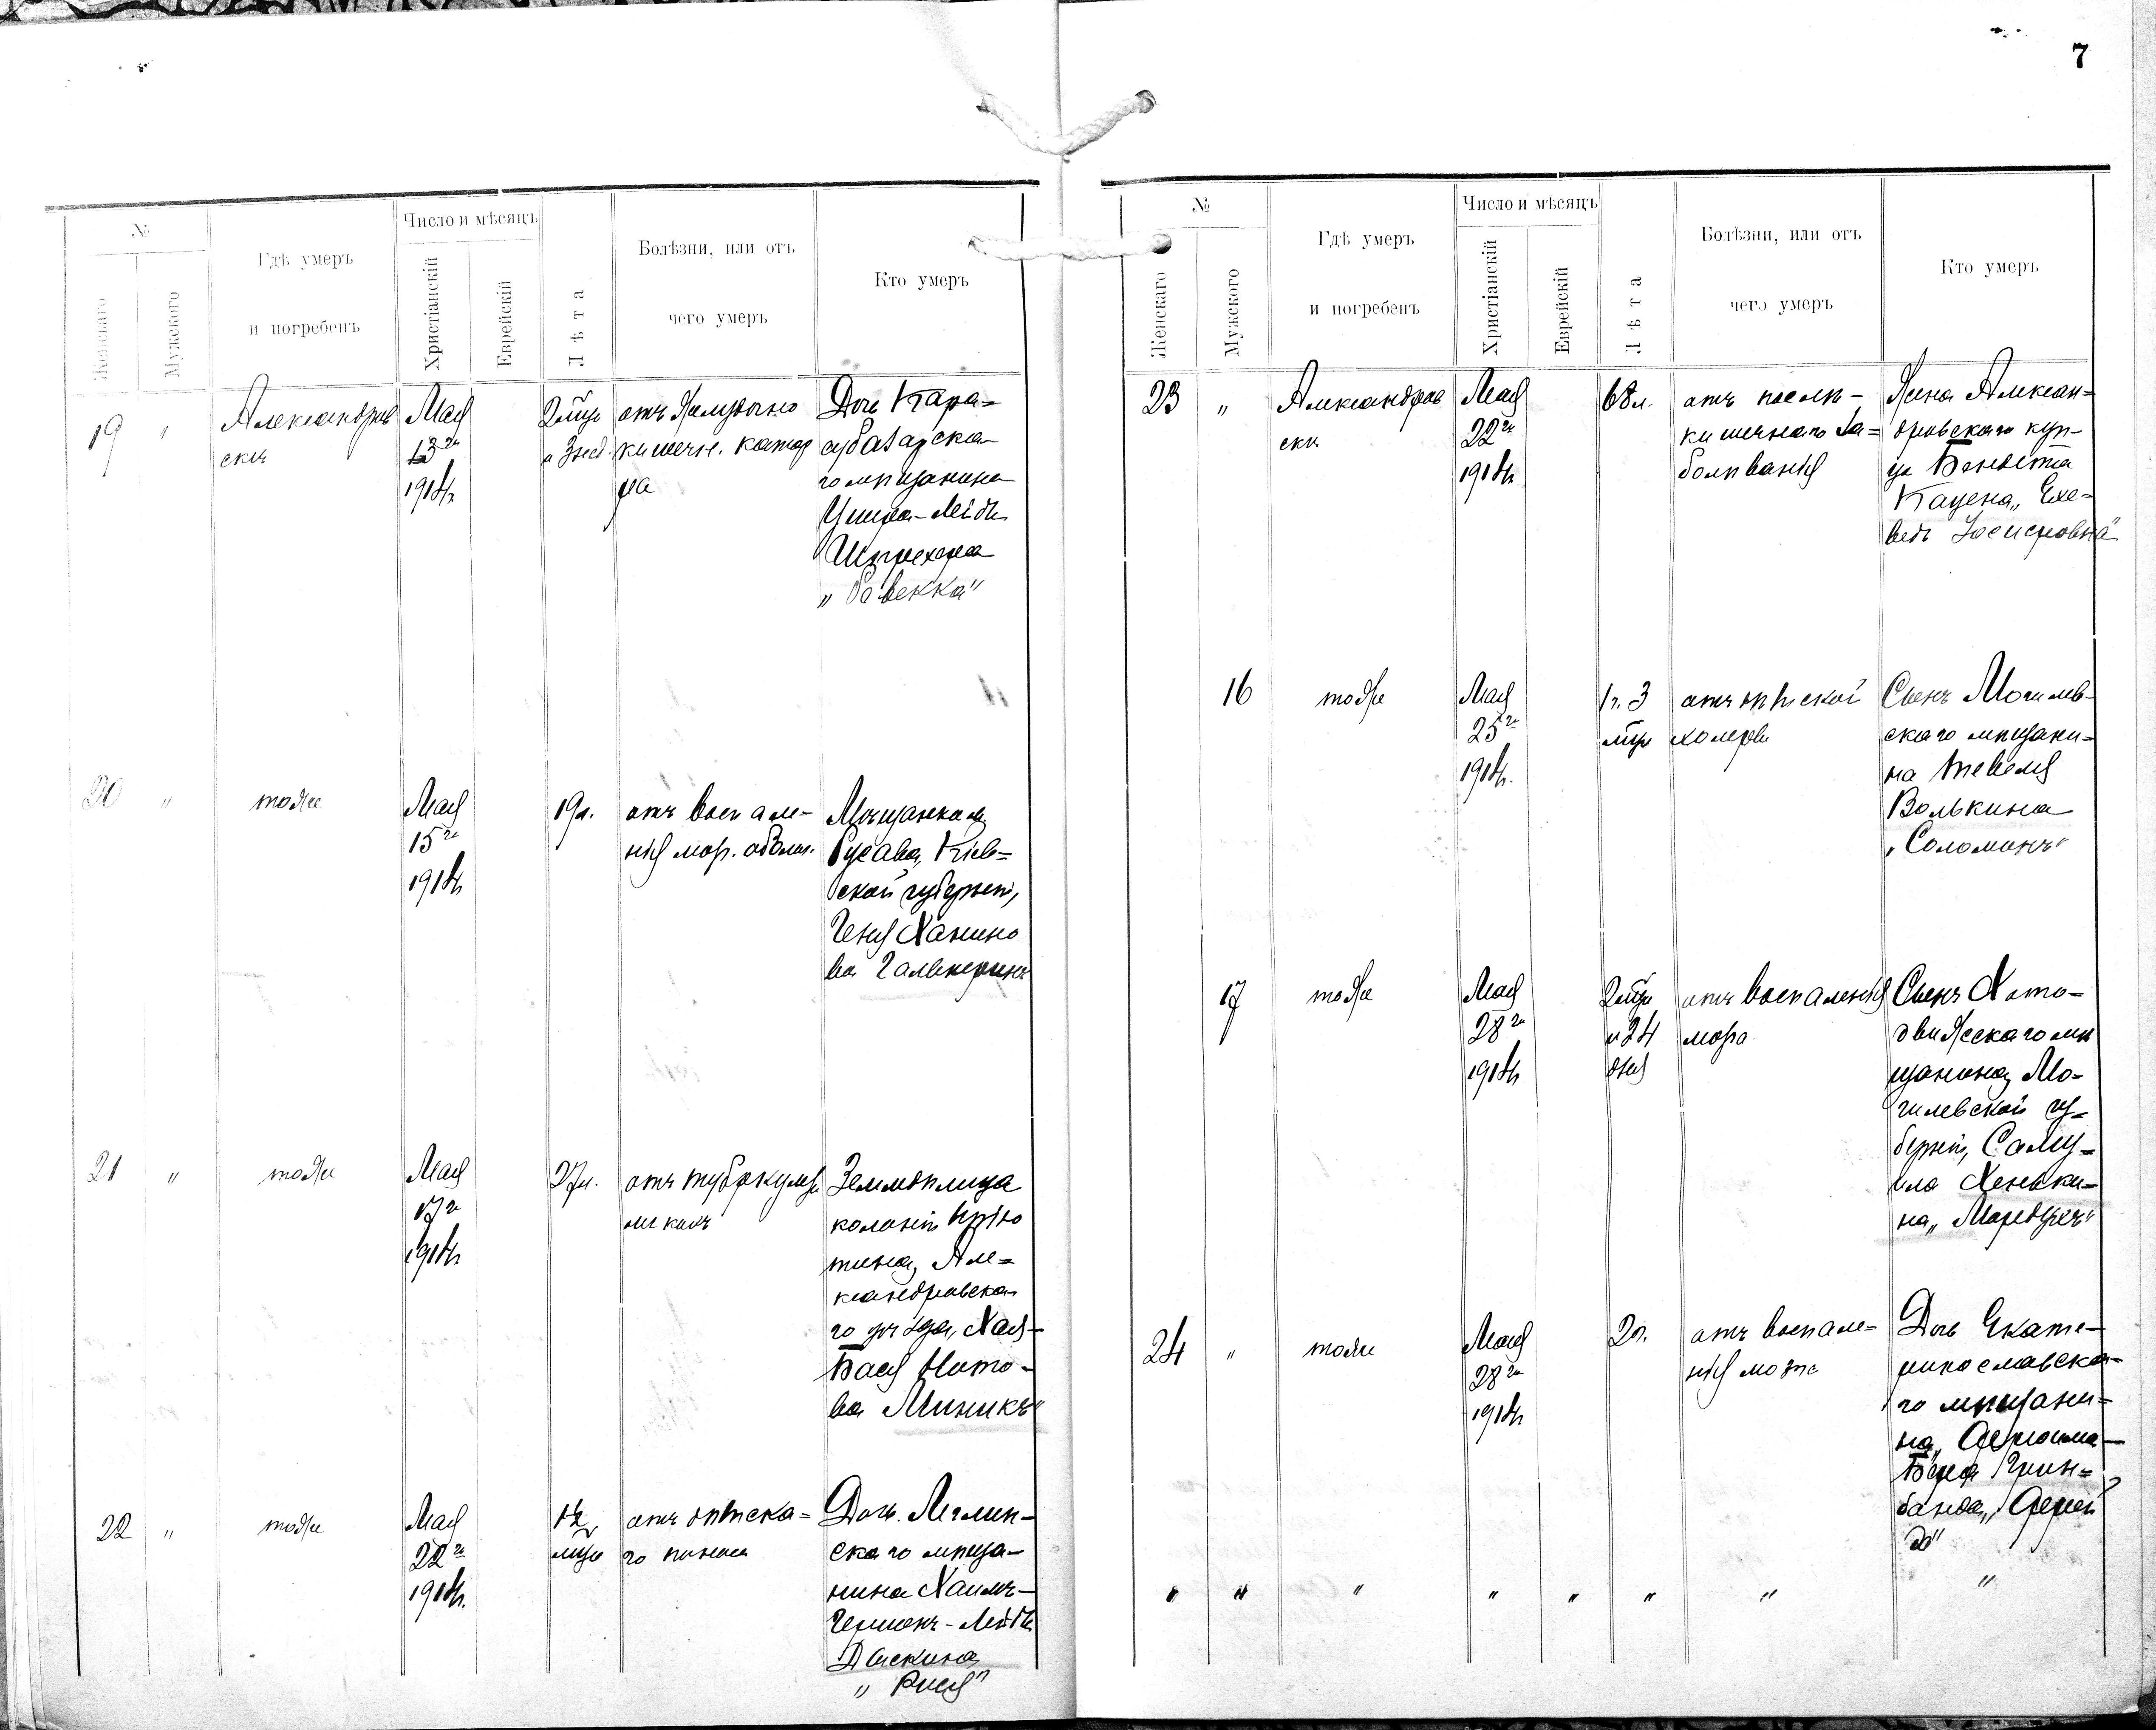 7
№
Женскаго
Мужского
Гдѣ умеръ
и погребенъ
Число и мѣсяцъ
Христіанскій
Еврейскій
Лѣта
Болѣзни, или отъ
чего умеръ
Кто умеръ
19 "
Александровскъ
Мая
13го
1914г.
2 мѣс.
отъ желудочно
кишечн. катар
ра
Дочь Кара-
субазарска
го мѣщанина
Лейбы
Шпрехера
„Ревекка"
20 "
тоже
Мая
15го
1914г.
19л.
отъ воспале-
нія мозг. оболоч.
Мѣщанка
Кіев-
ской губерніи,
Геня Ханино
ва Гальперинъ
21 "
тоже
Мая
17го
1914г.
27л.
отъ туберкулеза
легкихъ
Землевладѣлица
колоніи
Але-
ксандровска
го уѣзда, Хая-
Бася Ното-
ва Миникъ
22 "
тоже
Мая
22го
1914г.
1½
мѣс.
отъ дѣтска-
го поноса
Дочь Мглин-
скаго мѣща-
нина Хаимъ-
Гершонъ-Лейбы
Даскина
„Рися"
№
Женскаго
Мужского
Гдѣ умеръ
и погребенъ
Число и мѣсяцъ
Христіанскій
Еврейскій
Лѣта
Болѣзни, или отъ
чего умеръ
Кто умеръ
23 "
Александров
скъ
Мая
22го
1914г.
68л.
отъ
кишечнаго за-
болѣванія
Жена Алексан-
дровскаго куп-
ца
Кацена, „Ехе-
ведъ Іосифовна"
16
тоже
Мая
25го
1914г.
1г. 3
мѣс
отъ дѣтской
холеры
Сынъ Могилев-
скаго мѣщани-
на Тевеля
Волькина
„Соломонъ"
17
тоже
Мая
28го
1914г.
2 мѣс
и 24
дня
отъ воспаленія
мозга
Сынъ Хото-
вижскаго мѣ
щанина, Мо-
гилевской гу-
берніи, Саму-
ила Хенькина
на „Мордухъ"
24 "
тоже
Мая
28го
1914г.
2г.
отъ воспале-
нія мозга
Дочь Екате-
ринославска-
го мѣщани-
на,
Бера Грин-
банда,
" " " " " " " "